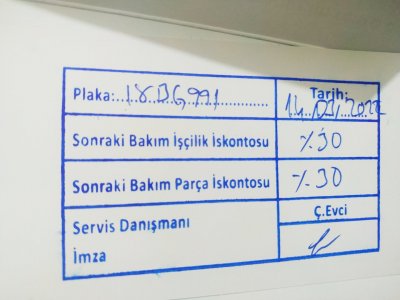 Plaka: 18 DG 991 Tarih:
14.03.2022
Sonraki Bakım İşçilik İskontosu %30
Sonraki Bakım Parça İskontosu %30
Servis Danışmanı Ç.Evci
İmza